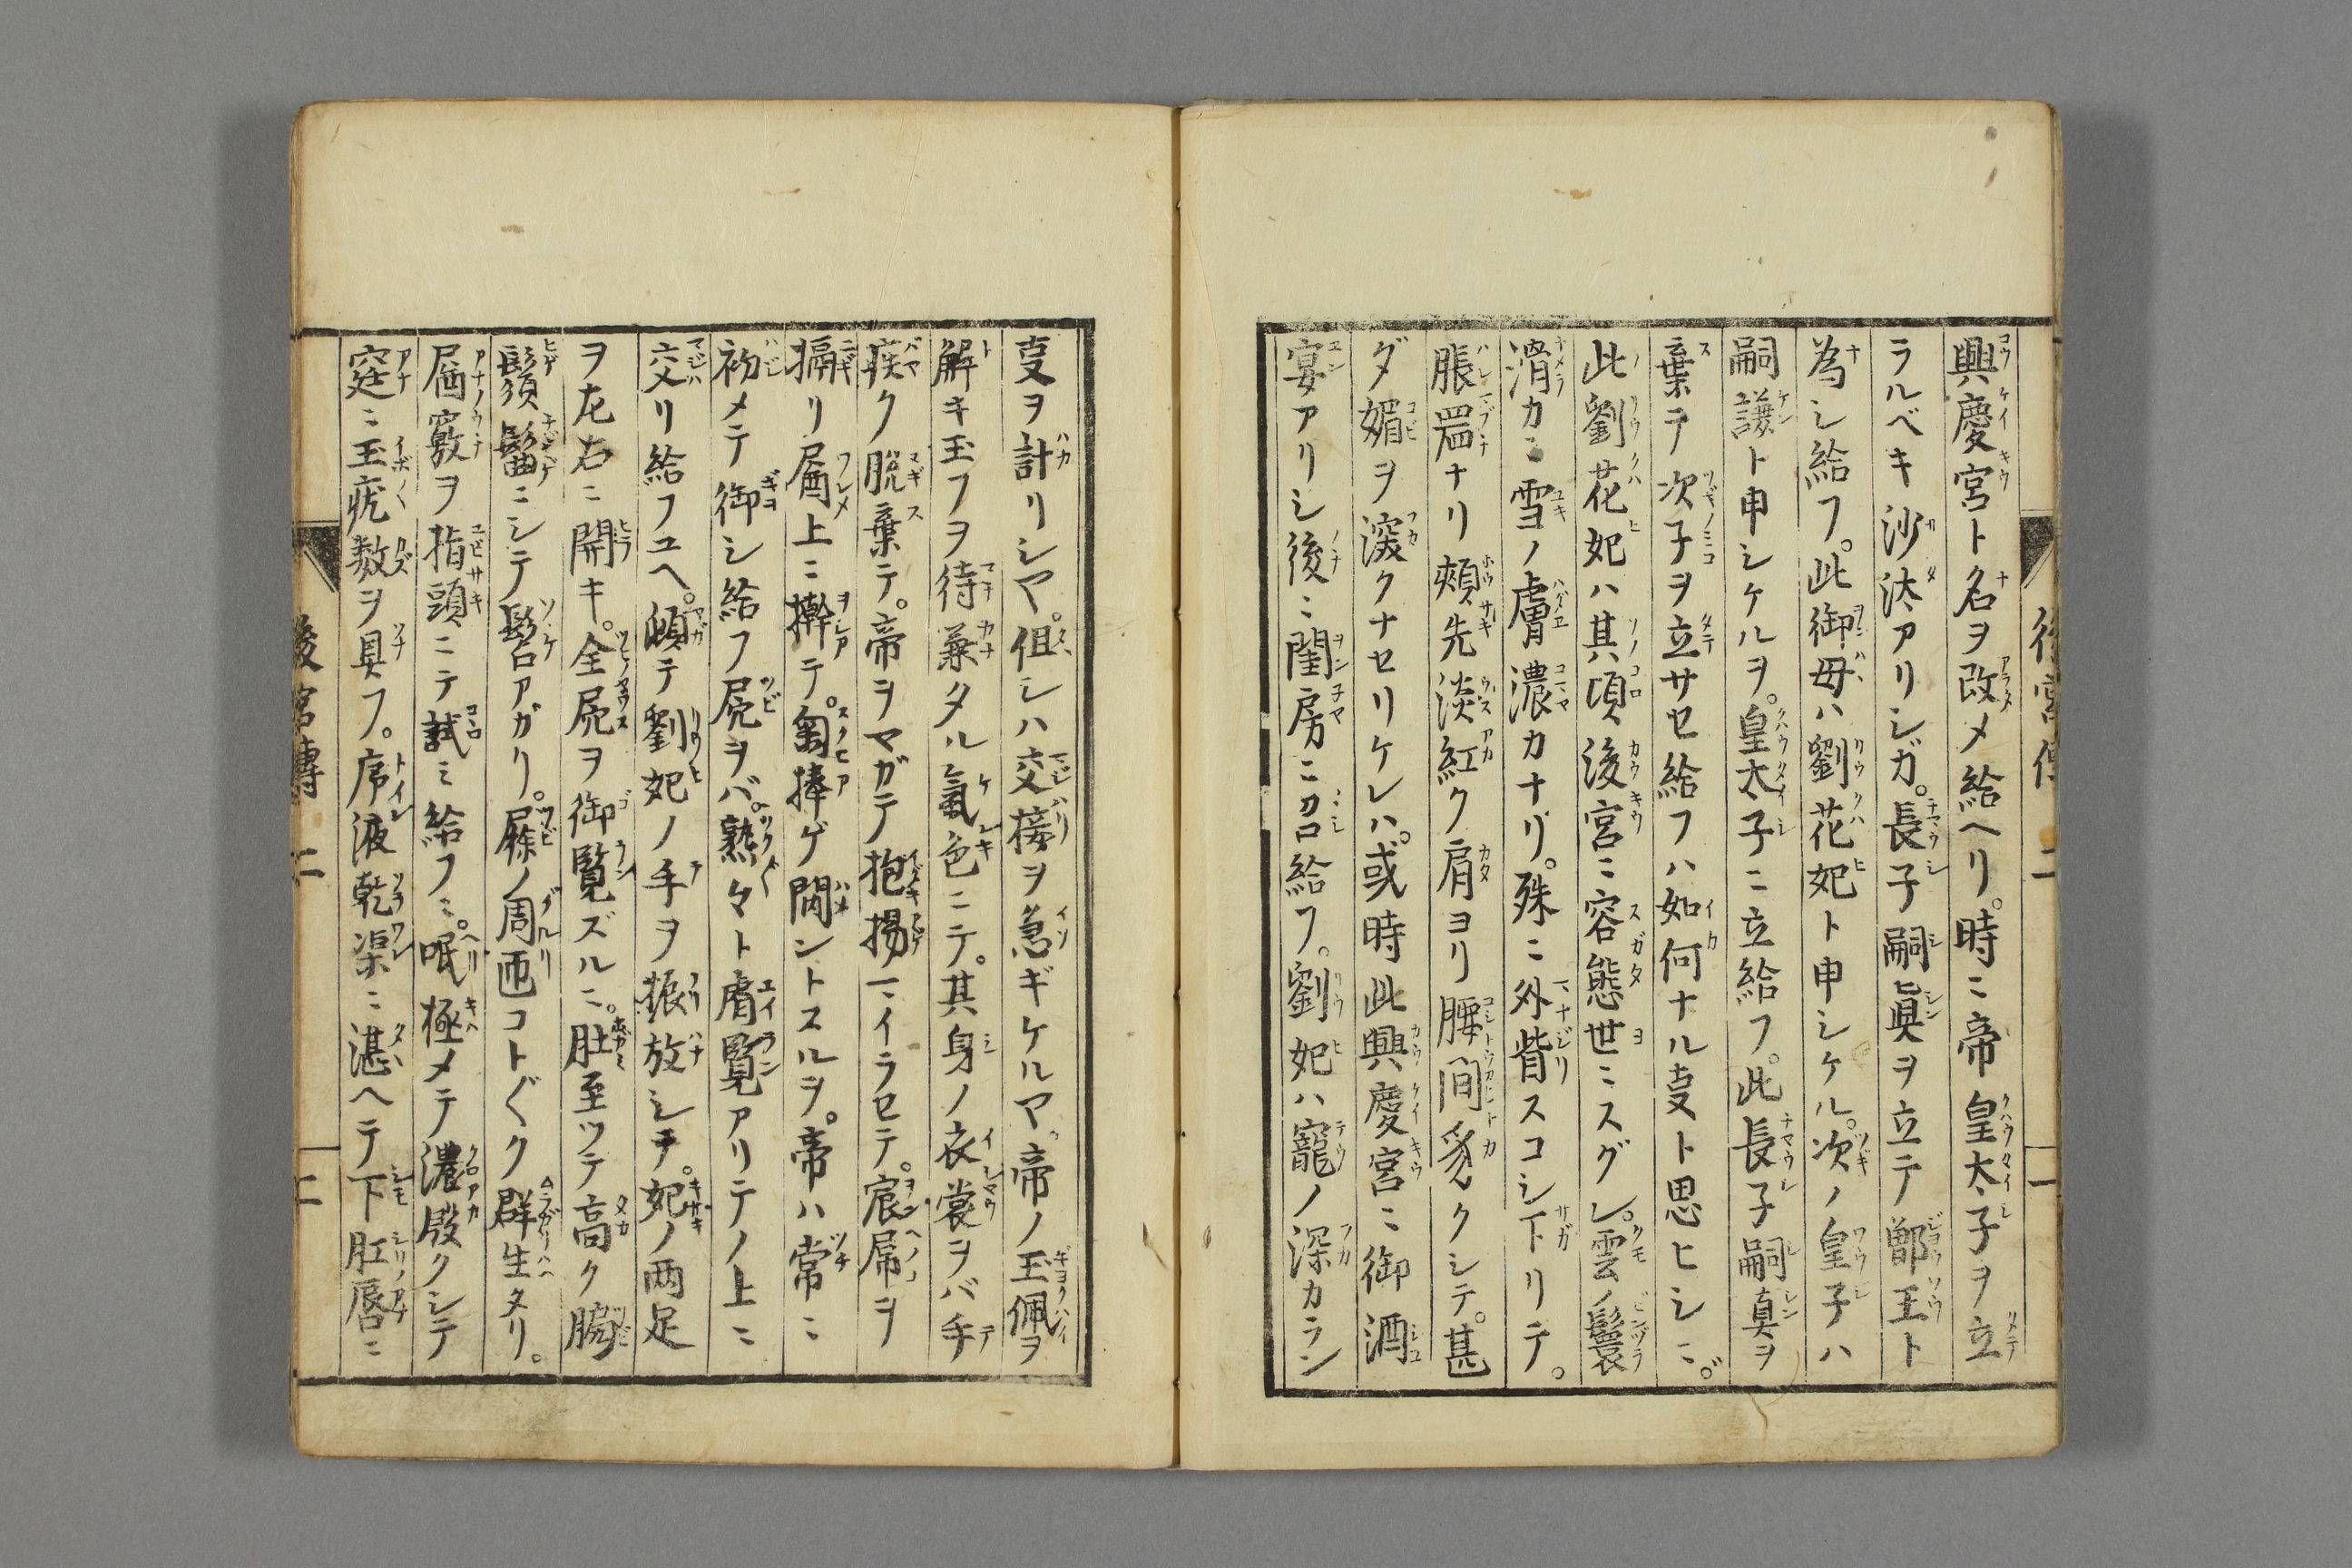 後宮傳 二 一
興慶宮ト名ヲ改メ給ヘリ。時ニ帝皇太子ヲ立
ラルベキ沙汰アリシガ。長子嗣眞ヲ立テ鄫王ト
為シ給フ。此御母ハ劉花妃ト申シケル。次ノ皇子ハ
嗣謙ト申シケルヲ。皇太子ニ立給フ。此長子嗣真ヲ
棄テ次子ヲ立サセ給フハ如何ナル㕝ト思ヒシニ。
此劉花妃ハ其頃後宮ニ容態世ニスグレ。雲ノ鬟
滑カニ雪ノ膚濃カナリ。殊ニ外眥スコシ下リテ。
脹ナリ頰先淡紅ク肩ヨリ腰間クシテ。甚
ダ媚ヲ深クナセリケレハ。或時此興慶宮ニ御酒
宴アリシ後ニ閨房ニ召給フ。劉妃ハ寵ノ深カラン
㕝ヲ計リシマ。但シハ交接ヲ急ギケルマ。帝ノ玉佩ヲ
解キ玉フヲ待兼タル氣色ニテ。其身ノ衣裳ヲバ手
疾ク脱棄テ。帝ヲマガテ抱揚ニイラセテ。宸屌ヲ
搹リ上ニテ。捧ゲ閊ントスルヲ。帝ハ常ニ
初メテ御シ給フ屄ヲバ。熟々マト睿覧アリテノ上ニ
交リ給フユヘ。頓テ劉妃ノ手ヲ振放シテ。妃ノ両足
ヲ左右ニ開キ。全屄ヲ御覧ズルニ。肚至ツテ高ク
鬚ニシテ髫アガリ。ノ周匝コト〲ク群生タリ。
竅ヲ指頭ニテ試ミ給フニ。極メテ濃殷クシテ
ニ玉疣数ヲ具フ。液乾渠ニ湛ヘテ下肛唇ニ
後宮傳 二 二